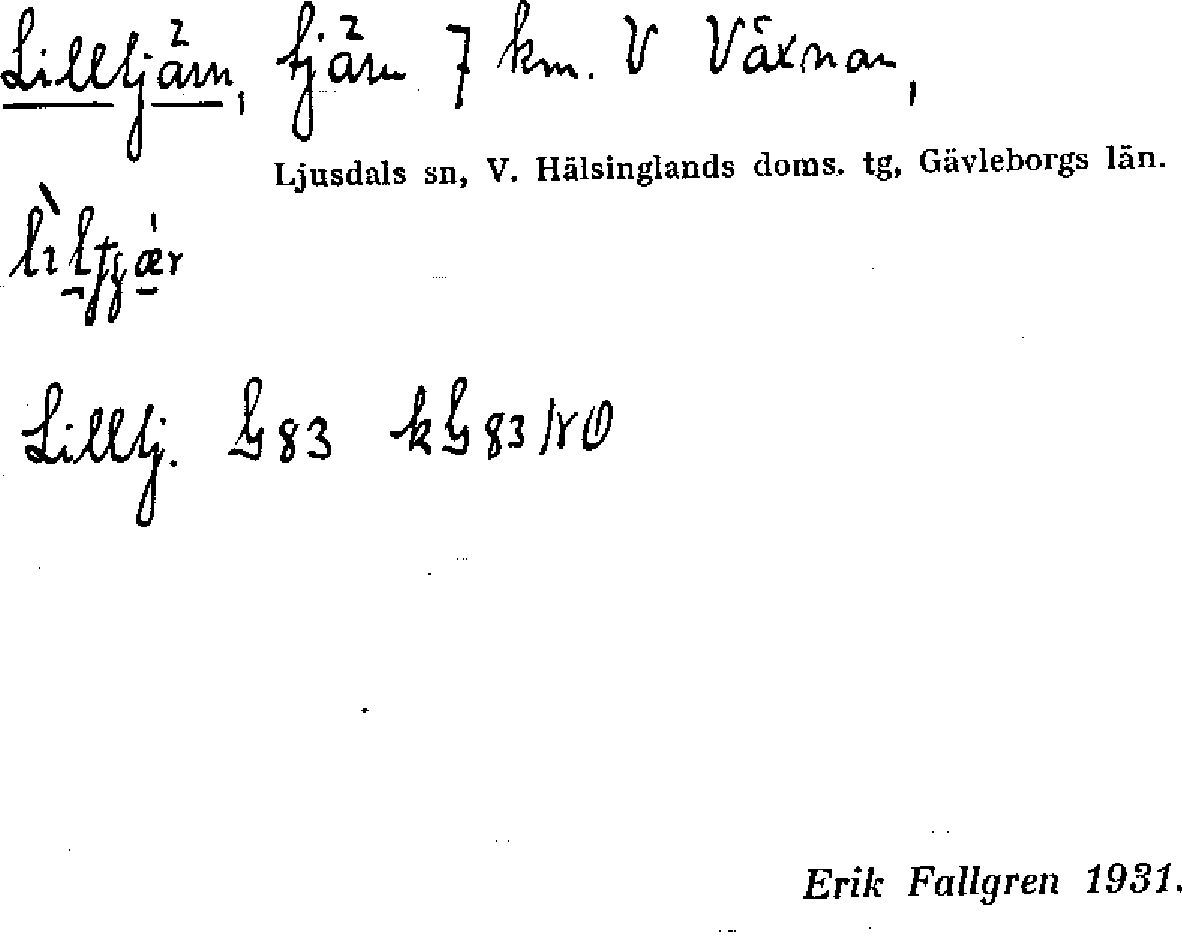 Lilltjärn, tjärn 7 km. V Växnan,
Ljusdals sn, V. Hälsinglands doms. tg, Gävleborgs län.
Lilltj. G83 kG83
Erik Fallgren 1931.